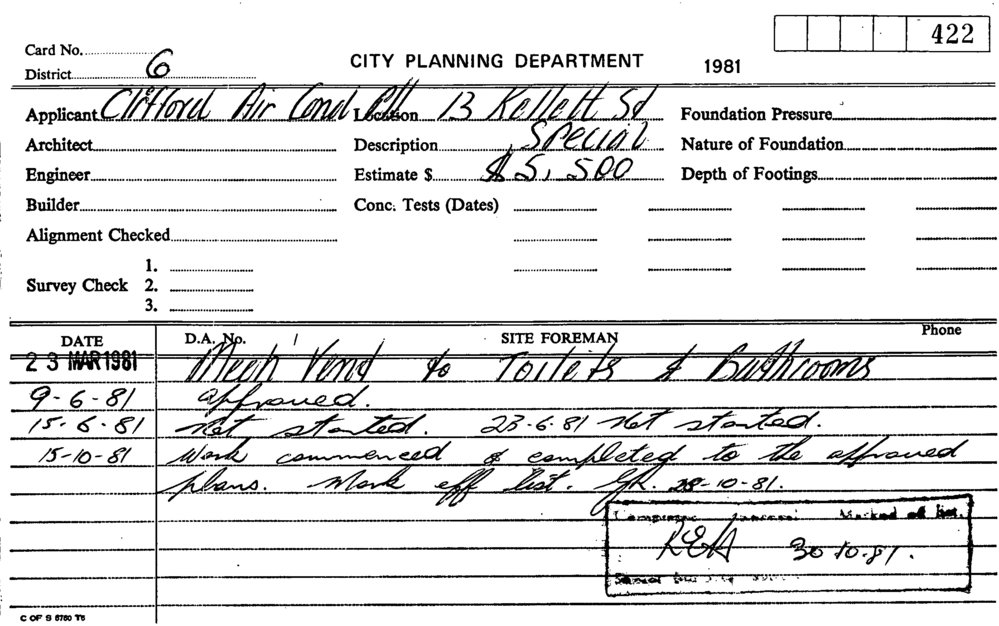 422
Card No.
CITY PLANNING DEPARTMENT 1981
District 6
Applicant Clifford Air Cond P/L Location 13 Kellett St Foundation Pressure
Architect Description Special Nature of Foundation
Engineer Estimate $ $5,500 Depth of Footings
Builder Conc. Tests (Dates)
Alignment Checked
1.
Survey Check 2.
3.
DATE D.A. No. SITE FOREMAN Phone
23 MAR 1981 Mech Vent to Toilets & Bathrooms
9-6-81 approved.
15-6-81 Not started. 23-6-81 Not started.
15-10-81 Work commenced & completed to the approved
plans. Mark off list. 28-10-81.
Marked off list.
30.10.81.
C OF S 8760 T6